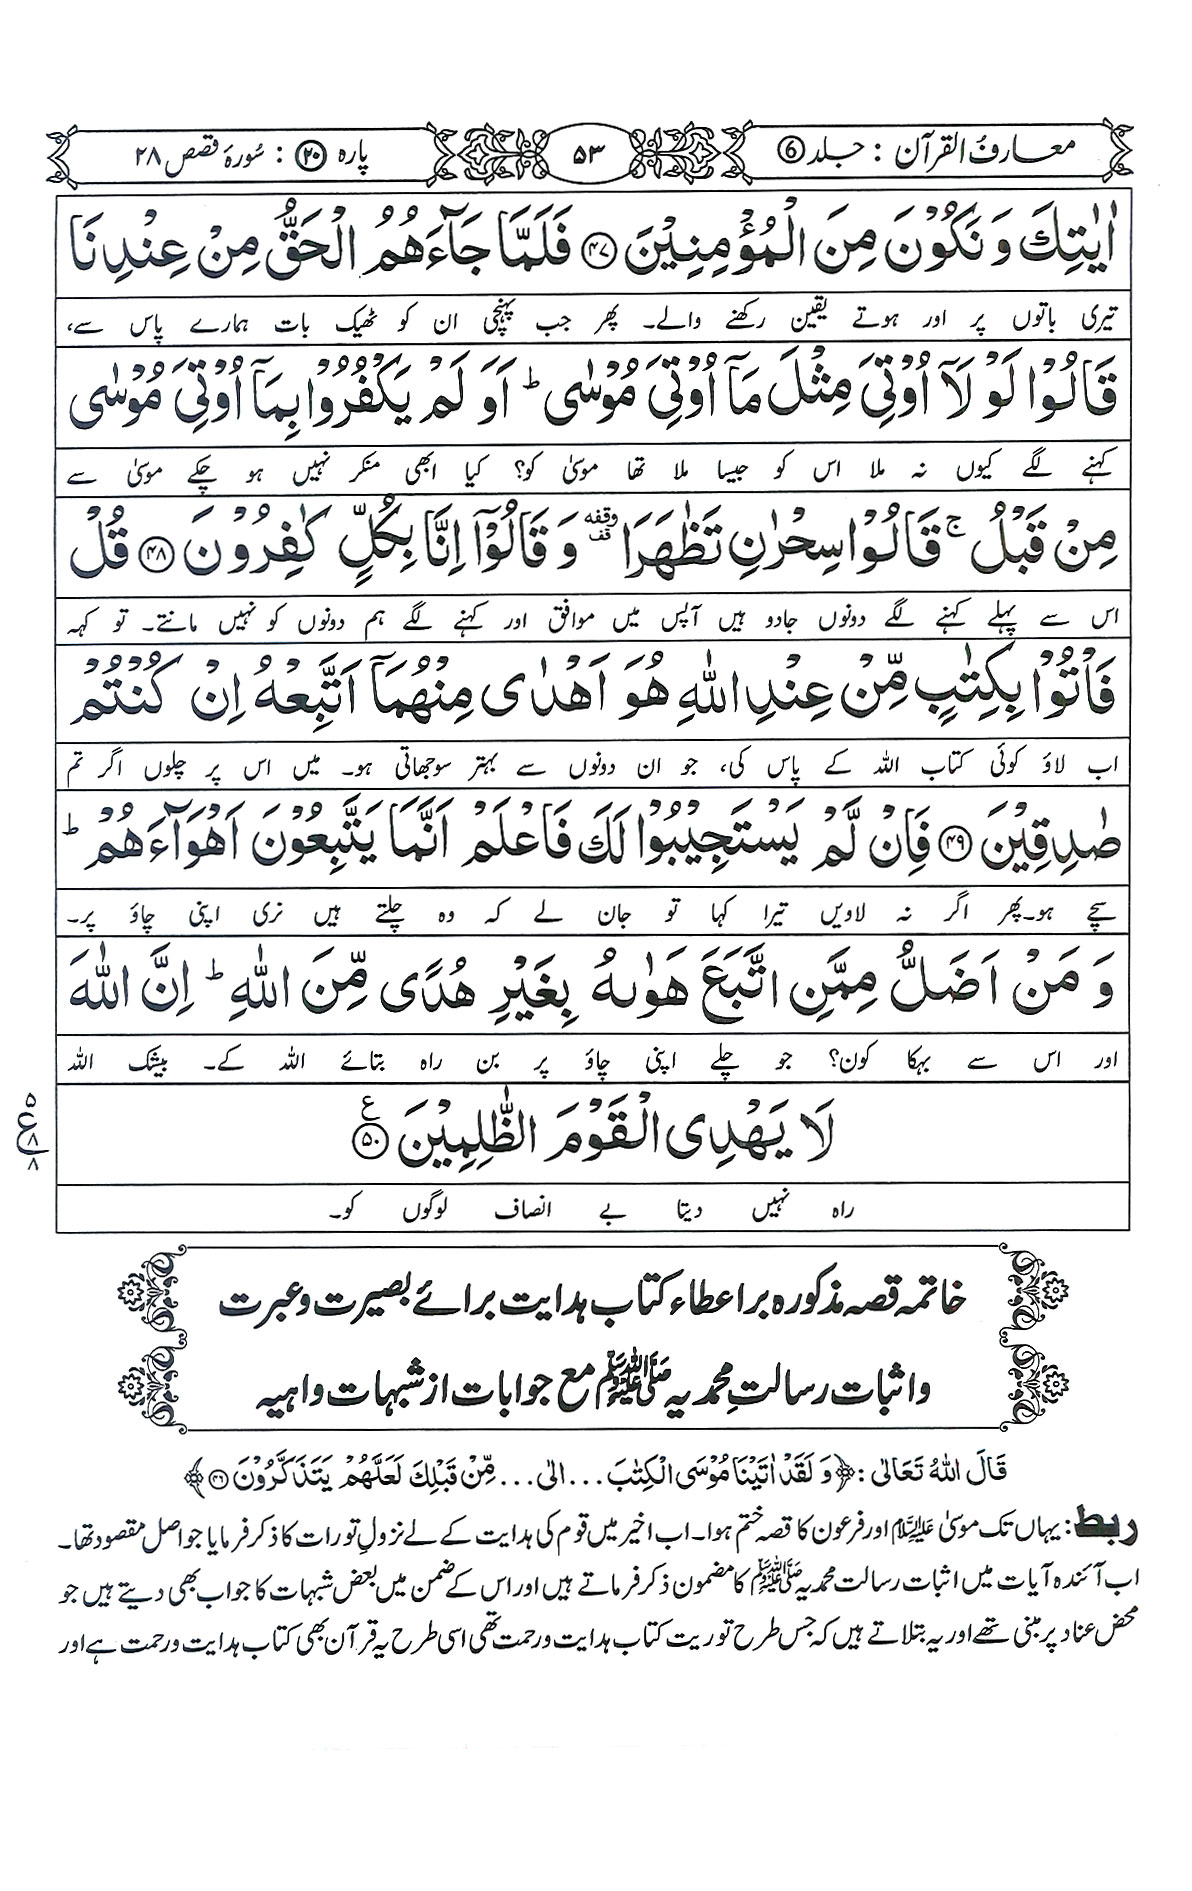 معارفُ القرآن : جلد ⑥
۵۳
پارہ ⑳ : سُورۂ قصص ۲۸
اٰیٰتِكَ وَ نَكُوْنَ مِنَ الْمُؤْمِنِیْنَ ﴿۴۷﴾ فَلَمَّا جَآءَهُمُ الْحَقُّ مِنْ عِنْدِنَا
تیری باتوں پر اور ہوتے یقین رکھنے والے۔ پھر جب پہنچی ان کو ٹھیک بات ہمارے پاس سے،
قَالُوْا لَوْ لَاۤ اُوْتِیَ مِثْلَ مَاۤ اُوْتِیَ مُوْسٰی ؕ اَوَ لَمْ یَكْفُرُوْا بِمَاۤ اُوْتِیَ مُوْسٰی
کہنے لگے کیوں نہ ملا اس کو جیسا ملا تھا موسیٰ کو؟ کیا ابھی منکر نہیں ہو چکے موسیٰ سے
مِنْ قَبْلُ ۚ قَالُوْا سِحْرٰنِ تَظٰهَرَا وقفه قف وَ قَالُوْۤا اِنَّا بِكُلٍّ كٰفِرُوْنَ ﴿۴۸﴾ قُلْ
اس سے پہلے کہنے لگے دونوں جادو ہیں آپس میں موافق اور کہنے لگے ہم دونوں کو نہیں مانتے۔ تو کہہ
فَاْتُوْا بِكِتٰبٍ مِّنْ عِنْدِ اللّٰهِ هُوَ اَهْدٰی مِنْهُمَاۤ اَتَّبِعْهُ اِنْ كُنْتُمْ
اب لاؤ کوئی کتاب اللہ کے پاس کی، جو ان دونوں سے بہتر سوجھاتی ہو۔ میں اس پر چلوں اگر تم
صٰدِقِیْنَ ﴿۴۹﴾ فَاِنْ لَّمْ یَسْتَجِیْبُوْا لَكَ فَاعْلَمْ اَنَّمَا یَتَّبِعُوْنَ اَهْوَآءَهُمْ ؕ
سچے ہو۔پھر اگر نہ لاویں تیرا کہا تو جان لے کہ وہ چلتے ہیں نری اپنی چاؤ پر۔
وَ مَنْ اَضَلُّ مِمَّنِ اتَّبَعَ هَوٰىهُ بِغَیْرِ هُدًی مِّنَ اللّٰهِ ؕ اِنَّ اللّٰهَ
اور اس سے بہکا کون؟ جو چلے اپنی چاؤ پر بن راہ بتائے اللہ کے۔ بیشک اللہ
لَا یَهْدِی الْقَوْمَ الظّٰلِمِیْنَ ﴿۵۰﴾ ع
۵ ع ۸ ۸
راہ نہیں دیتا بے انصاف لوگوں کو۔
خاتمہ قصہ مذکورہ براعطاء کتاب ہدایت برائے بصیرت وعبرت
واثبات رسالتِ محمدیہ ﷺ مع جوابات از شبہات واہیہ
قَالَ اللّٰهُ تَعَالٰی : ﴿وَ لَقَدْ اٰتَیْنَا مُوْسَی الْكِتٰبَ ... الٰی ... مِّنْ قَبْلِكَ لَعَلَّهُمْ یَتَذَكَّرُوْنَ ۴۶﴾
ربط : یہاں تک موسیٰ علیہ السلام اور فرعون کا قصہ ختم ہوا۔ اب اخیر میں قوم کی ہدایت کے لے نزولِ تورات کا ذکر فرمایا جو اصل مقصود تھا۔
اب آئندہ آیات میں اثبات رسالت محمدیہ ﷺ کا مضمون ذکر فرماتے ہیں اور اس کے ضمن میں بعض شبہات کا جواب بھی دیتے ہیں جو
محض عناد پر مبنی تھے اور یہ بتلاتے ہیں کہ جس طرح توریت کتاب ہدایت ورحمت تھی اسی طرح یہ قرآن بھی کتاب ہدایت ورحمت ہے اور